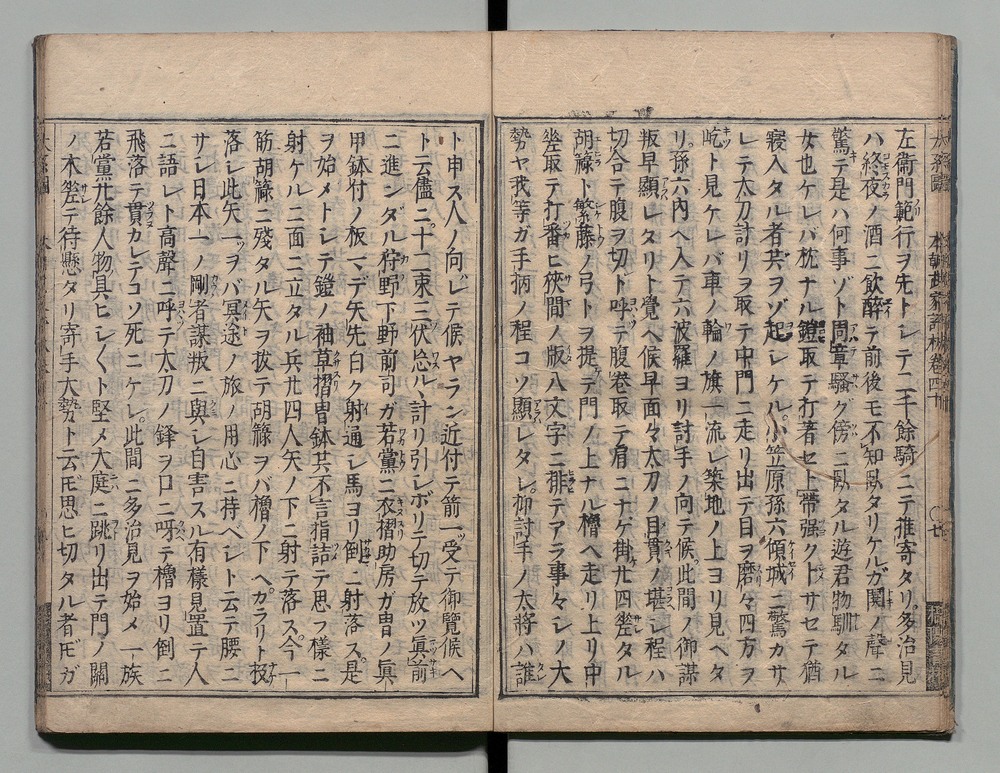 左衞門範行ヲ先トシテ二千餘騎ニテ推寄タリ多治見
ハ終夜ノ酒ニ飮醉テ前後モ不知臥タリケルガ関ノ聲ニ
驚テ是ハ何事ゾト周章騷グ傍ニ臥タル遊君物馴タル
女也ケレバ枕ナル鎧取テ打著セ上帶強クトサセテ猶
寢入タル者共ヲゾ起シケル小笠原孫六傾城ニ驚カサ
レテ太刀計リヲ取テ中門ニ走リ出テ目ヲ磨々四方ヲ
屹ト見ケレバ車ノ輪ノ旗一流レ築地ノ上ヨリ見ヘタ
リ孫六内ヘ入テ六波羅ヨリ討手ノ向テ候此間ノ御謀
叛早顯レタリト覺ヘ候早面々太刀ノ目貫ノ堪シ程ハ
切合テ腹ヲ切ト呼テ腹卷取テ肩ニナゲ掛廿四差タル
胡籙ト繁藤ノ弓トヲ提テ門ノ上ナル櫓ヘ走リ上リ中
差取テ打番ヒ狹間ノ版八文字ニ排テアラ事々シノ大
勢ヤ我等ガ手柄ノ程コソ顯レタレ抑討手ノ大將ハ誰
ト申ス人ノ向レテ候ヤラン近付テ箭一受テ御覽候ヘ
ト云儘ニ十二束三伏忘ルヽ計リ引シボリテ切テ放ツ眞前
ニ進ンダル狩野下野前司ガ若黨ニ衣摺助房ガ冑ノ眞
甲鉢付ノ板マデ矢先白ク射通シ馬ヨリ倒ニ射落ス是
ヲ始メトシテ鎧ノ袖草摺冑鉢共不言指詰テ思フ樣ニ
射ケルニ面ニ立タル兵廿四人矢ノ下ニ射テ落ス今一
筋胡籙ニ殘タル矢ヲ拔テ胡籙ヲバ櫓ノ下ヘカラリト投
落シ此矢一ツヲバ冥途ノ旅ノ用心ニ持ベシト云テ腰ニ
サシ日本一ノ剛者謀叛ニ與シ自害スル有樣見置テ人
ニ語レト高聲ニ呼テ太刀ノ鋒ヲ口ニ呀テ櫓ヨリ倒ニ
飛落テ貫カレテコソ死ニケレ此間ニ多治見ヲ始メ一族
若黨廿餘人物具ヒシ〱ト堅メ大庭ニ跳リ出テ門ノ關
ノ木差テ待懸タリ寄手大勢ト云ドモ思ヒ切タル者ドモガ